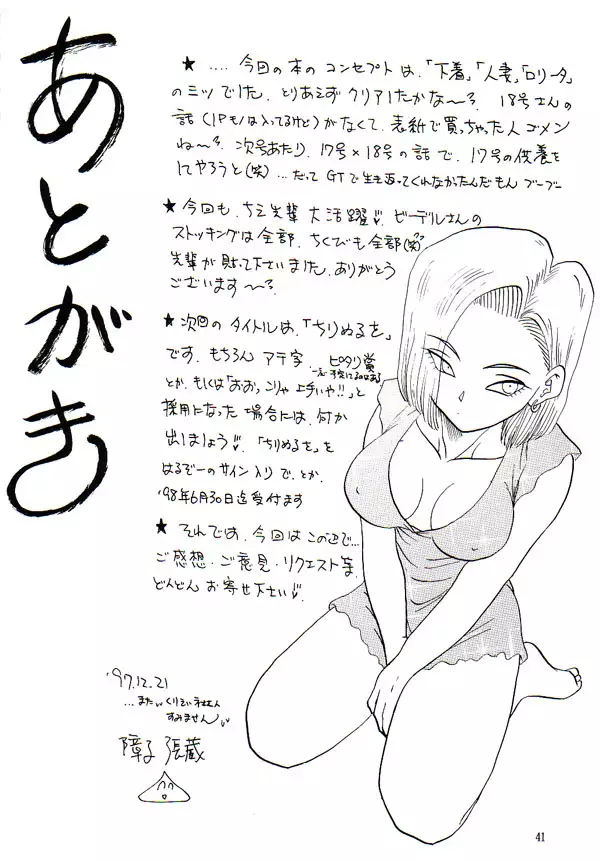 あとがき
★ .... 今回の本のコンセプトは、「下着」「人妻」「ロリータ」
の三ツでした。とりあえずクリアしたかな〜?. 18号さんの
話(1Pモノは入ってるけど)がなくて、表紙で買っちゃった人ゴメン
ね〜?. 次号あたり、17号×18号の話で、17号の供養を
してやろうと(笑)...だってGTで生き返ってくれなかったんだもんブーブー
★今回も、ちえ先輩 大活躍。ビーデルさんの
ストッキングは全部、ちくびも全部(笑)
先輩が貼って下さいました。ありがとう
ございます〜?.
★次回のタイトルは、「ちりぬるを」
です。もちろん アテ字、ピタリ賞
とか、もしくは「おおっこりゃ上手いや!!」と
採用になった場合には、何か
出しましょう。「ちりぬるを」を
はるぞーのサイン入りで、とか。
'98年6月30日迄受付ます
★ それでは、今回はこの辺で...
ご感想・ご意見・リクエスト等、
どんどんお寄せ下さい。
'97.12.21
...また
すみません
障子 張蔵
41